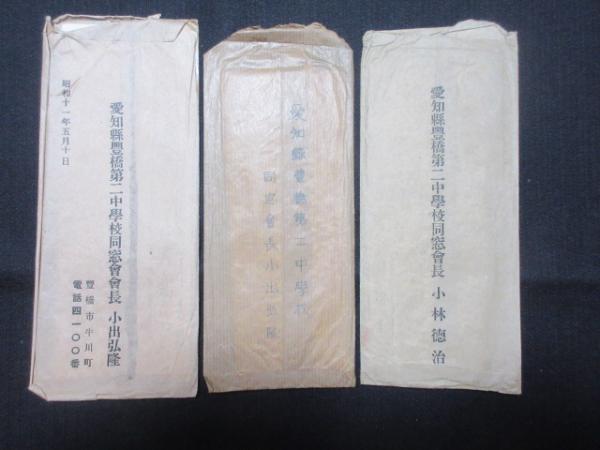 昭和十一年五月十日
愛知縣豐橋第二中學校同窓會會長 小出弘隆
豐橋市牛川町
電話四一〇〇番
愛知縣豐橋第二中學校
同窓會長小出弘隆
愛知縣豐橋第二中學校同窓會長 小林德治